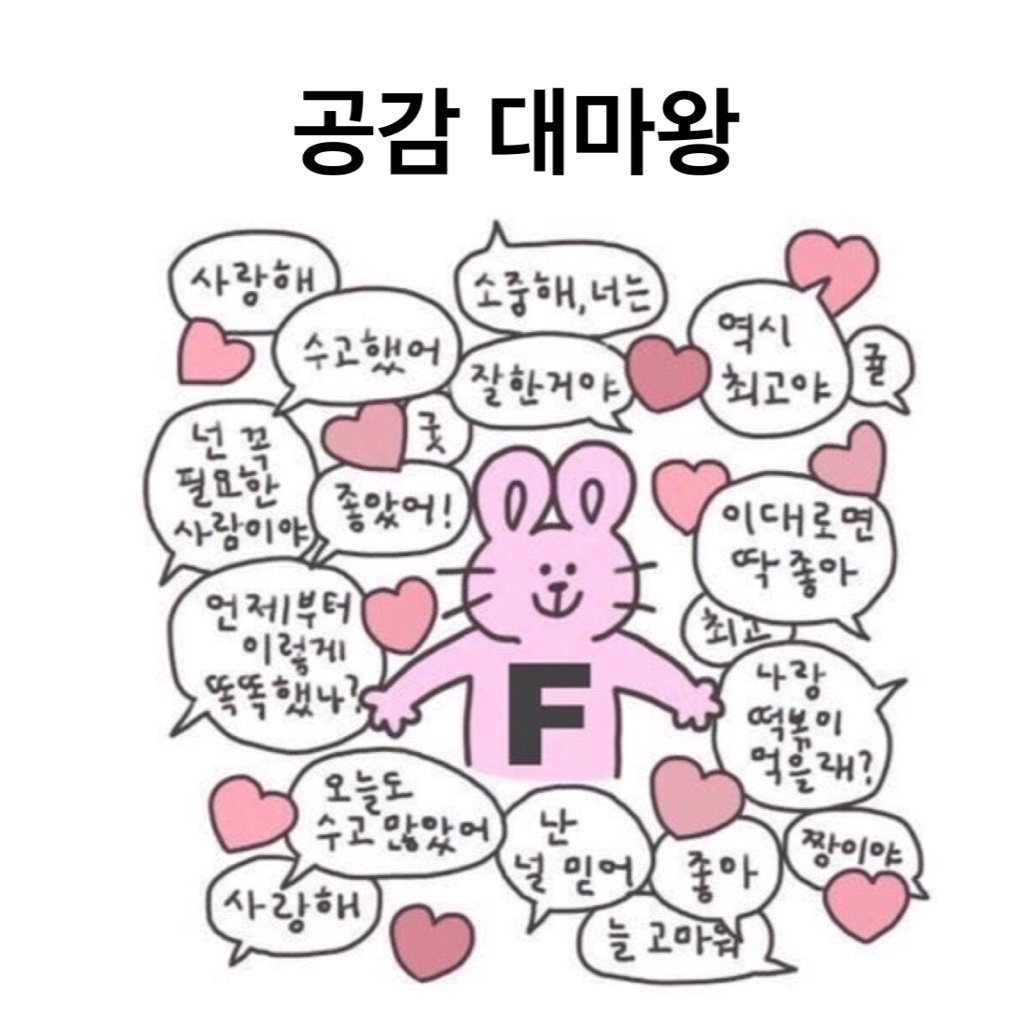 공감 대마왕
사랑해
수고했어
소중해,너는
잘한거야
역시
최고야
굳
넌 꼭
필요한
사람이야
좋았어!
이대로면
딱 좋아
언제부터
이렇게
똑똑했나?
최고
F
나랑
떡볶이
먹을래?
오늘도
수고 많았어
난
널 믿어
좋아
짱이야
사랑해
늘 고마워